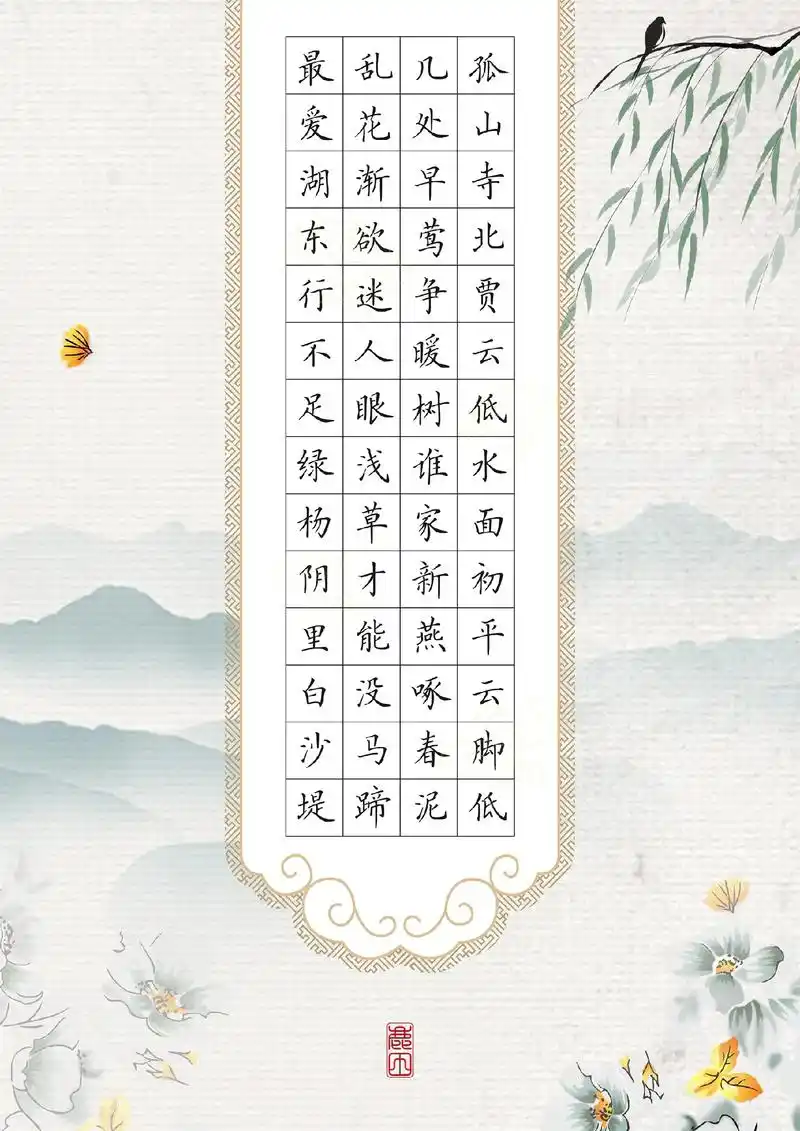 孤山寺北贾云低水面初平云脚低
几处早莺争暖树谁家新燕啄春泥
乱花渐欲迷人眼浅草才能没马蹄
最爱湖东行不足绿杨阴里白沙堤